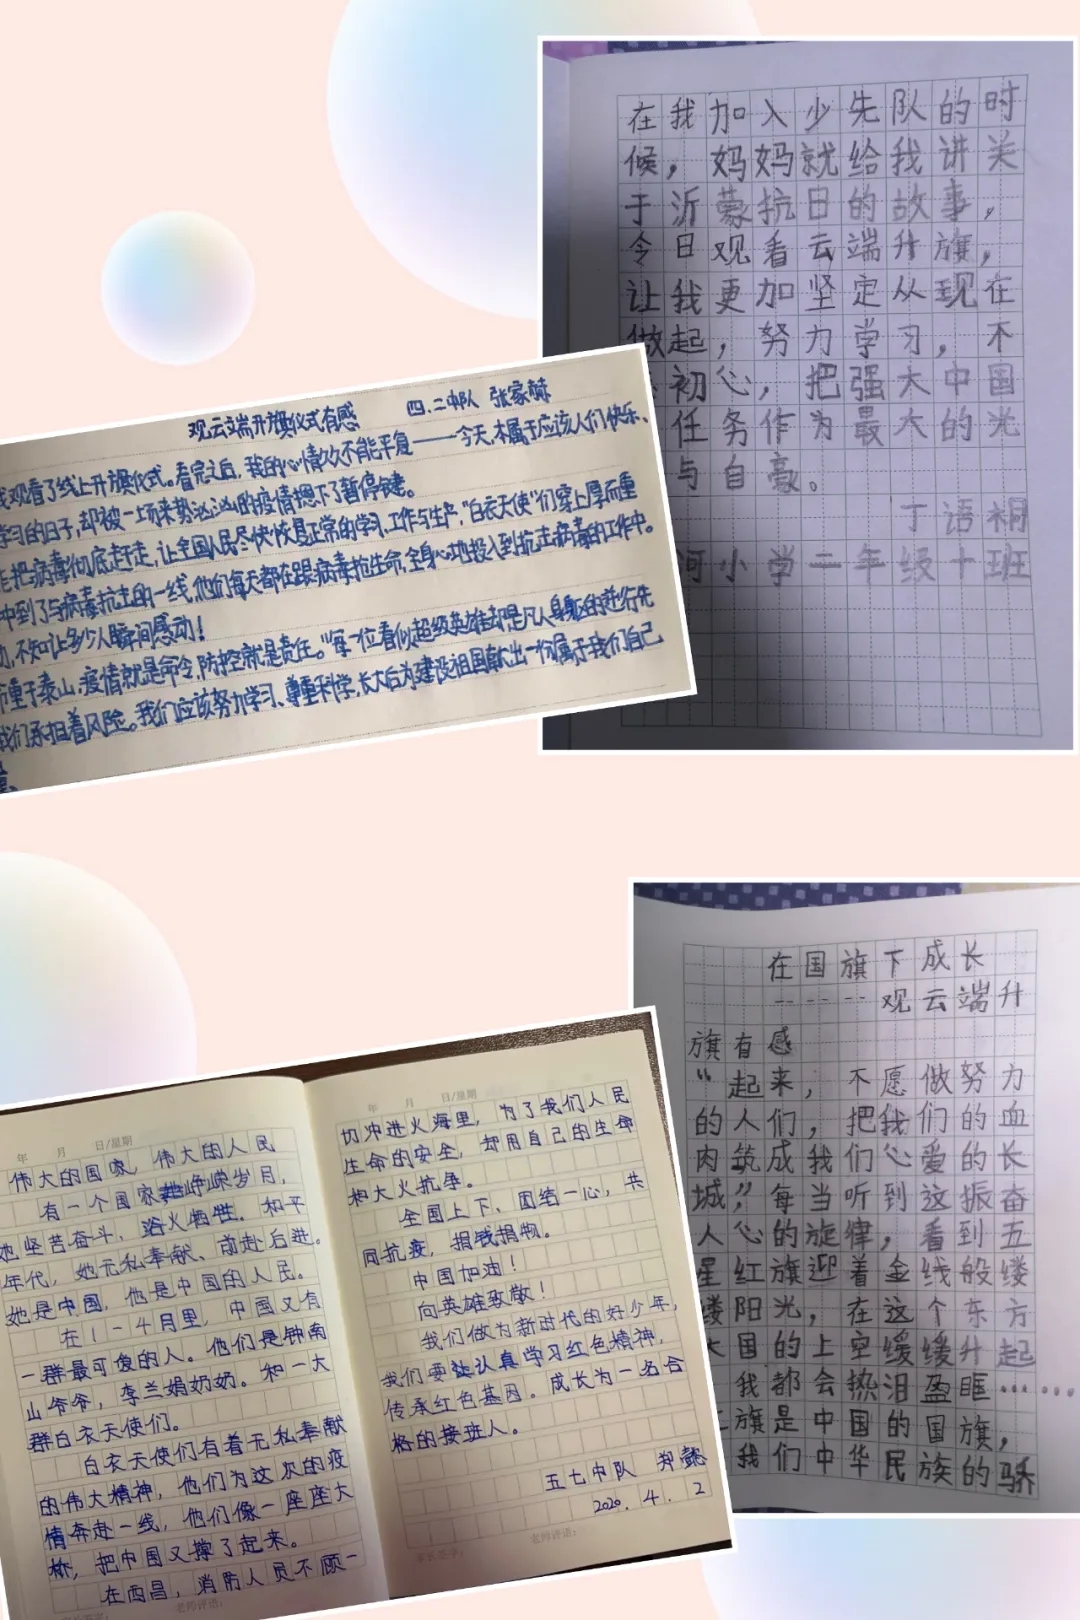 在我加入少先队的时
候，妈妈就给我讲关
于沂蒙抗日的故事，
令日观看云端升旗，
让我更加坚定从现在
做起，努力学习，不
初心，把强大中国
任务作为最大的光
与自豪。
丁语桐
河小学二年级十班
观云端升旗仪式有感
四.二中队 张家赫
我观看了线上升旗仪式。看完之后，我的心情久久不能平复——今天,本属于应该人们快乐、
学习的日子,却被一场来势汹汹的疫情摁下了暂停键。
能把病毒彻底赶走,让全国人民尽快恢复正常的学习、工作与生产,"白衣天使"们穿上厚而重
冲到了与病毒抗击的一线,他们每天都在跟病毒抗生命,全身心地投入到抗击病毒的工作中。
动,不知让多少人瞬间感动!
重于泰山,疫情就是命令,防控就是责任。"每一位看似超级英雄却是凡人身躯的逆行先
我们承担着风险。我们应该努力学习、尊重科学,长大后为建设祖国献出一份属于我们自己
在国旗下成长
----观云端升
旗有感
"起来，不愿做努力
的人们，把我们的血
肉筑成我们心爱的长
城，"每当听到这振奋
人心的旋律，看到五
星红旗迎着金线般缕
缕阳光，在这个东方
大国的上空缓缓升起
我都会热泪盈眶……
旗是中国的国旗，
我们中华民族的骄
年 月 日/星期
伟大的国家，伟大的人民
有一个国家峥嵘岁月，
她坚苦奋斗、浴火牺牲。和平
年代，她无私奉献、前赴后进。
她是中国，他是中国的人民。
在1-4月里，中国又有
一群最可爱的人。他们是钟南
山爷爷，李兰娟奶奶。和一大
群白衣天使们。
白衣天使们有着无私奉献
的伟大精神，他们为这次的疫
情奔赴一线，他们像一座座大
桥，把中国又撑了起来。
在西昌，消防人员不顾一
家长签字： 老师评语：
年 月 日/星期
切冲进火海里，为了我们人民
生命的安全，却用自己的生命
和大火抗争。
全国上下、团结一心，共
同抗疫，捐钱捐物。
中国加油！
向英雄致敬！
我们做为新时代的好少年，
我们要让认真学习红色精神，
传承红色基因。成长为一名合
格的接班人。
五七中队 郑懿
2020.4.2
家长签字： 老师评语：